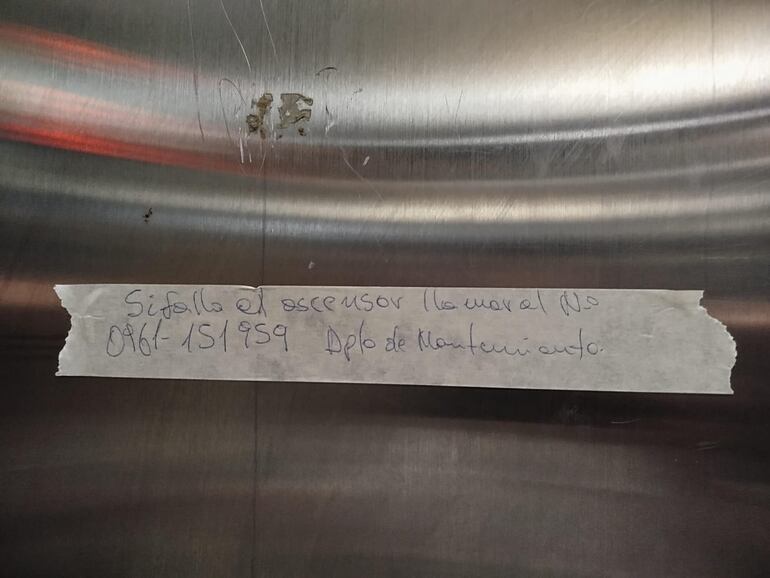 Si falla el ascensor llamar al No
0961-151959 Dpto de Mantenimiento.